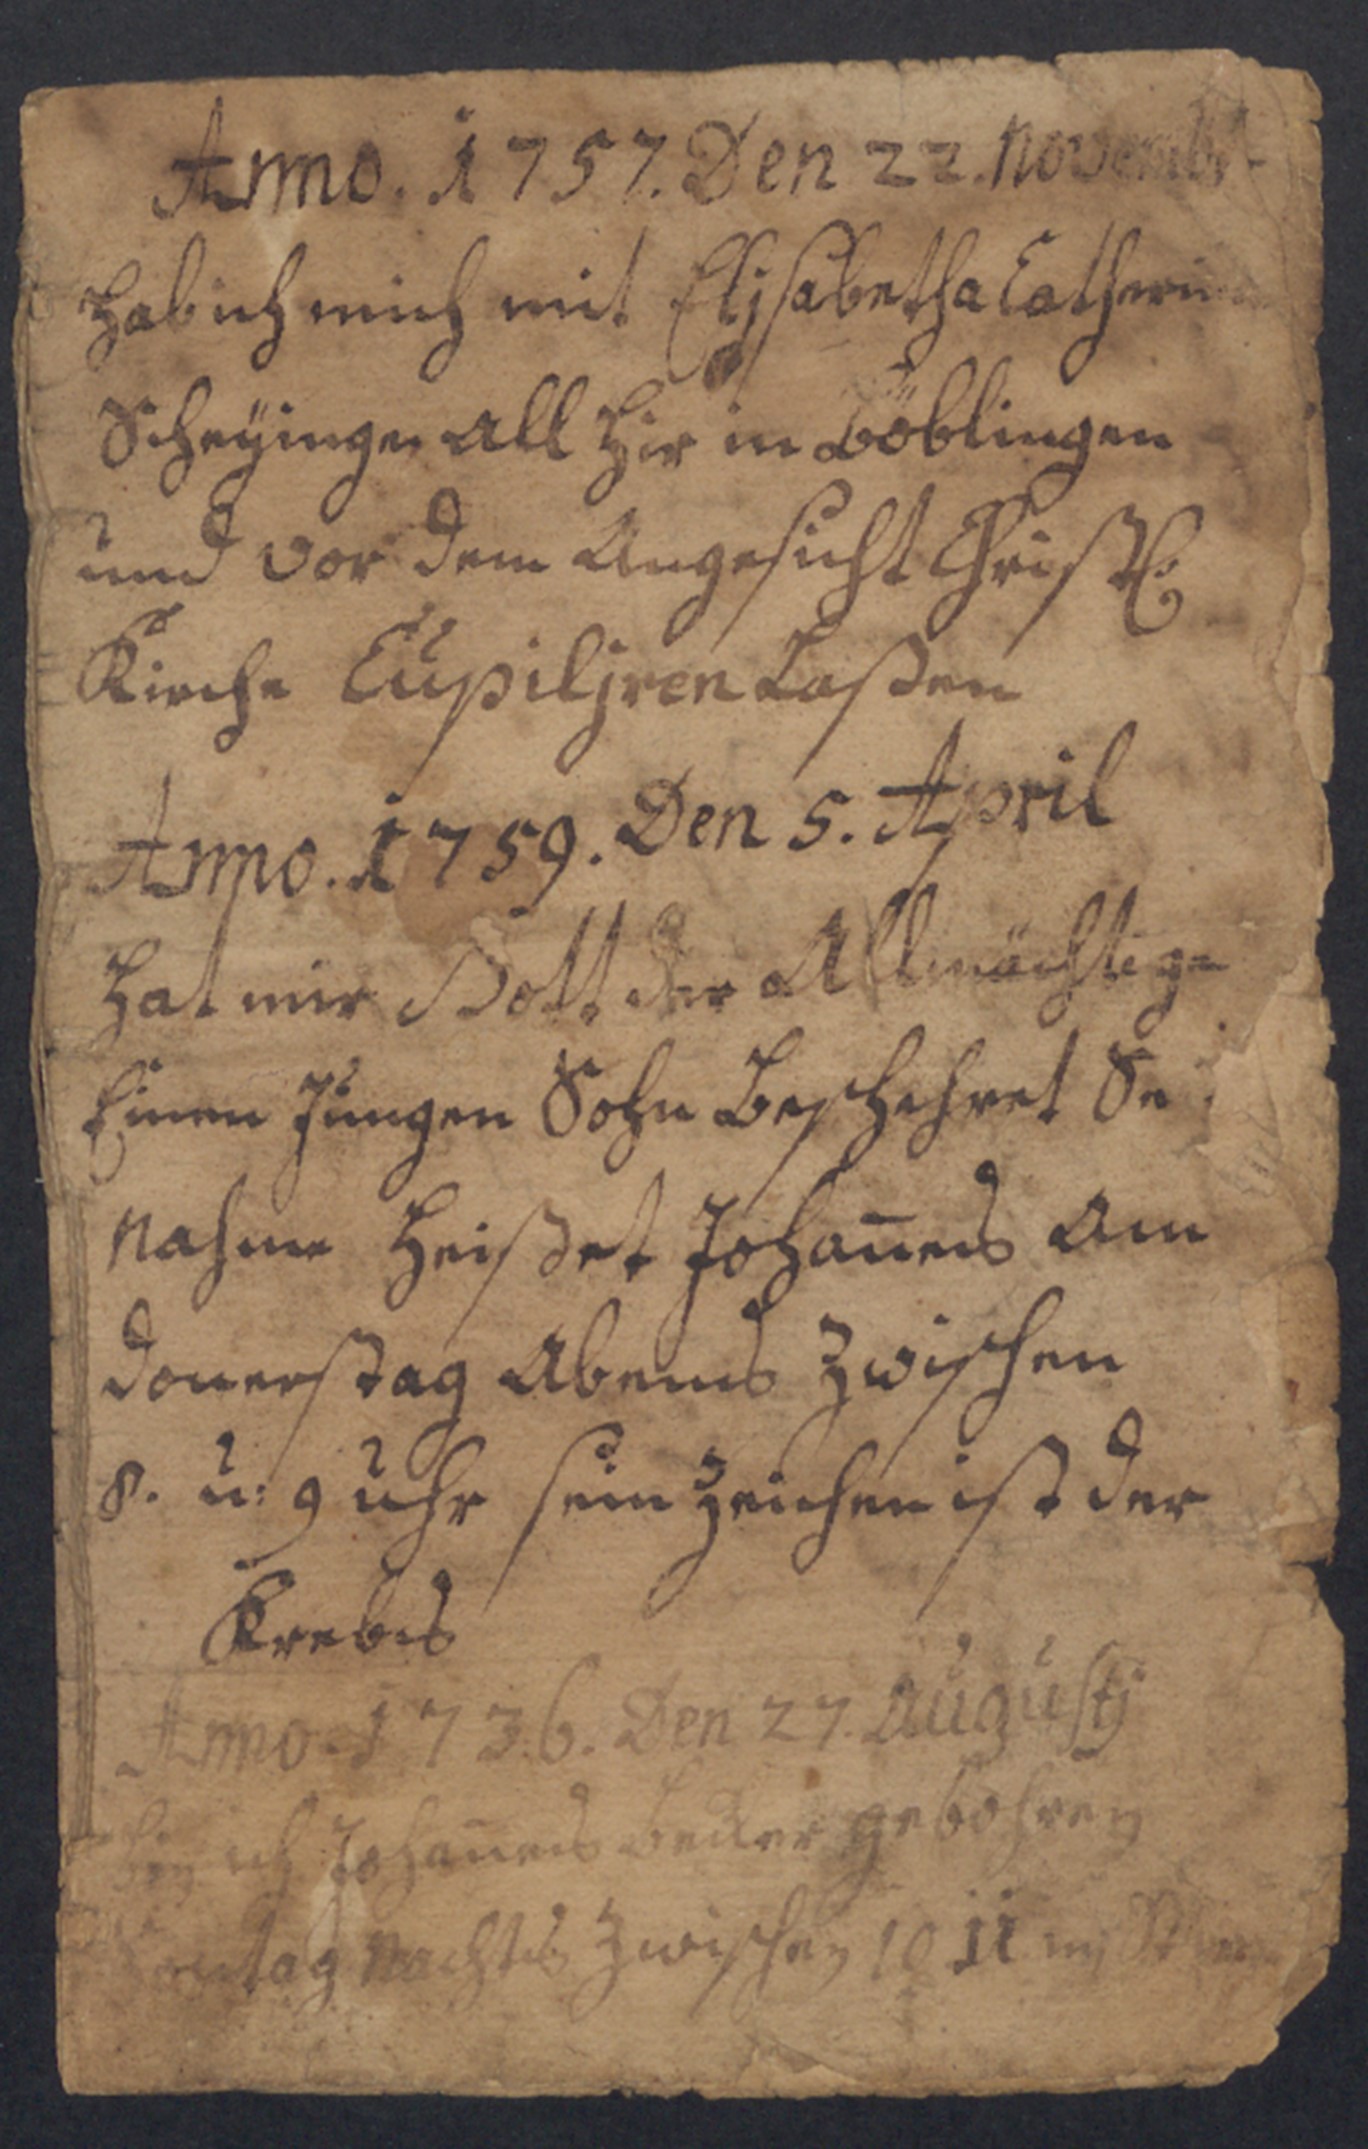 Anno. 1757. Den 22. Novembr
Hab ich mich mit Elisabetha Catherin
Scheÿinge all hir in Böblingen
und vor dem Angesicht Christl.
Kirche Cupiliren Laßen
Anno. 1759. Den 5. April
Hat mir Gott der Allmächtige
Einen Jungen Sohn Beschehret Se
Nahme Heißet Johañes Am
donerstag Abends Zwischen
8. u: 9 uhr sein Zeichen ist der
Krebs
Anno. 1736. Den 27. Augustj
bin ich Johañes gebohren
Nachts Zwischen 10 11